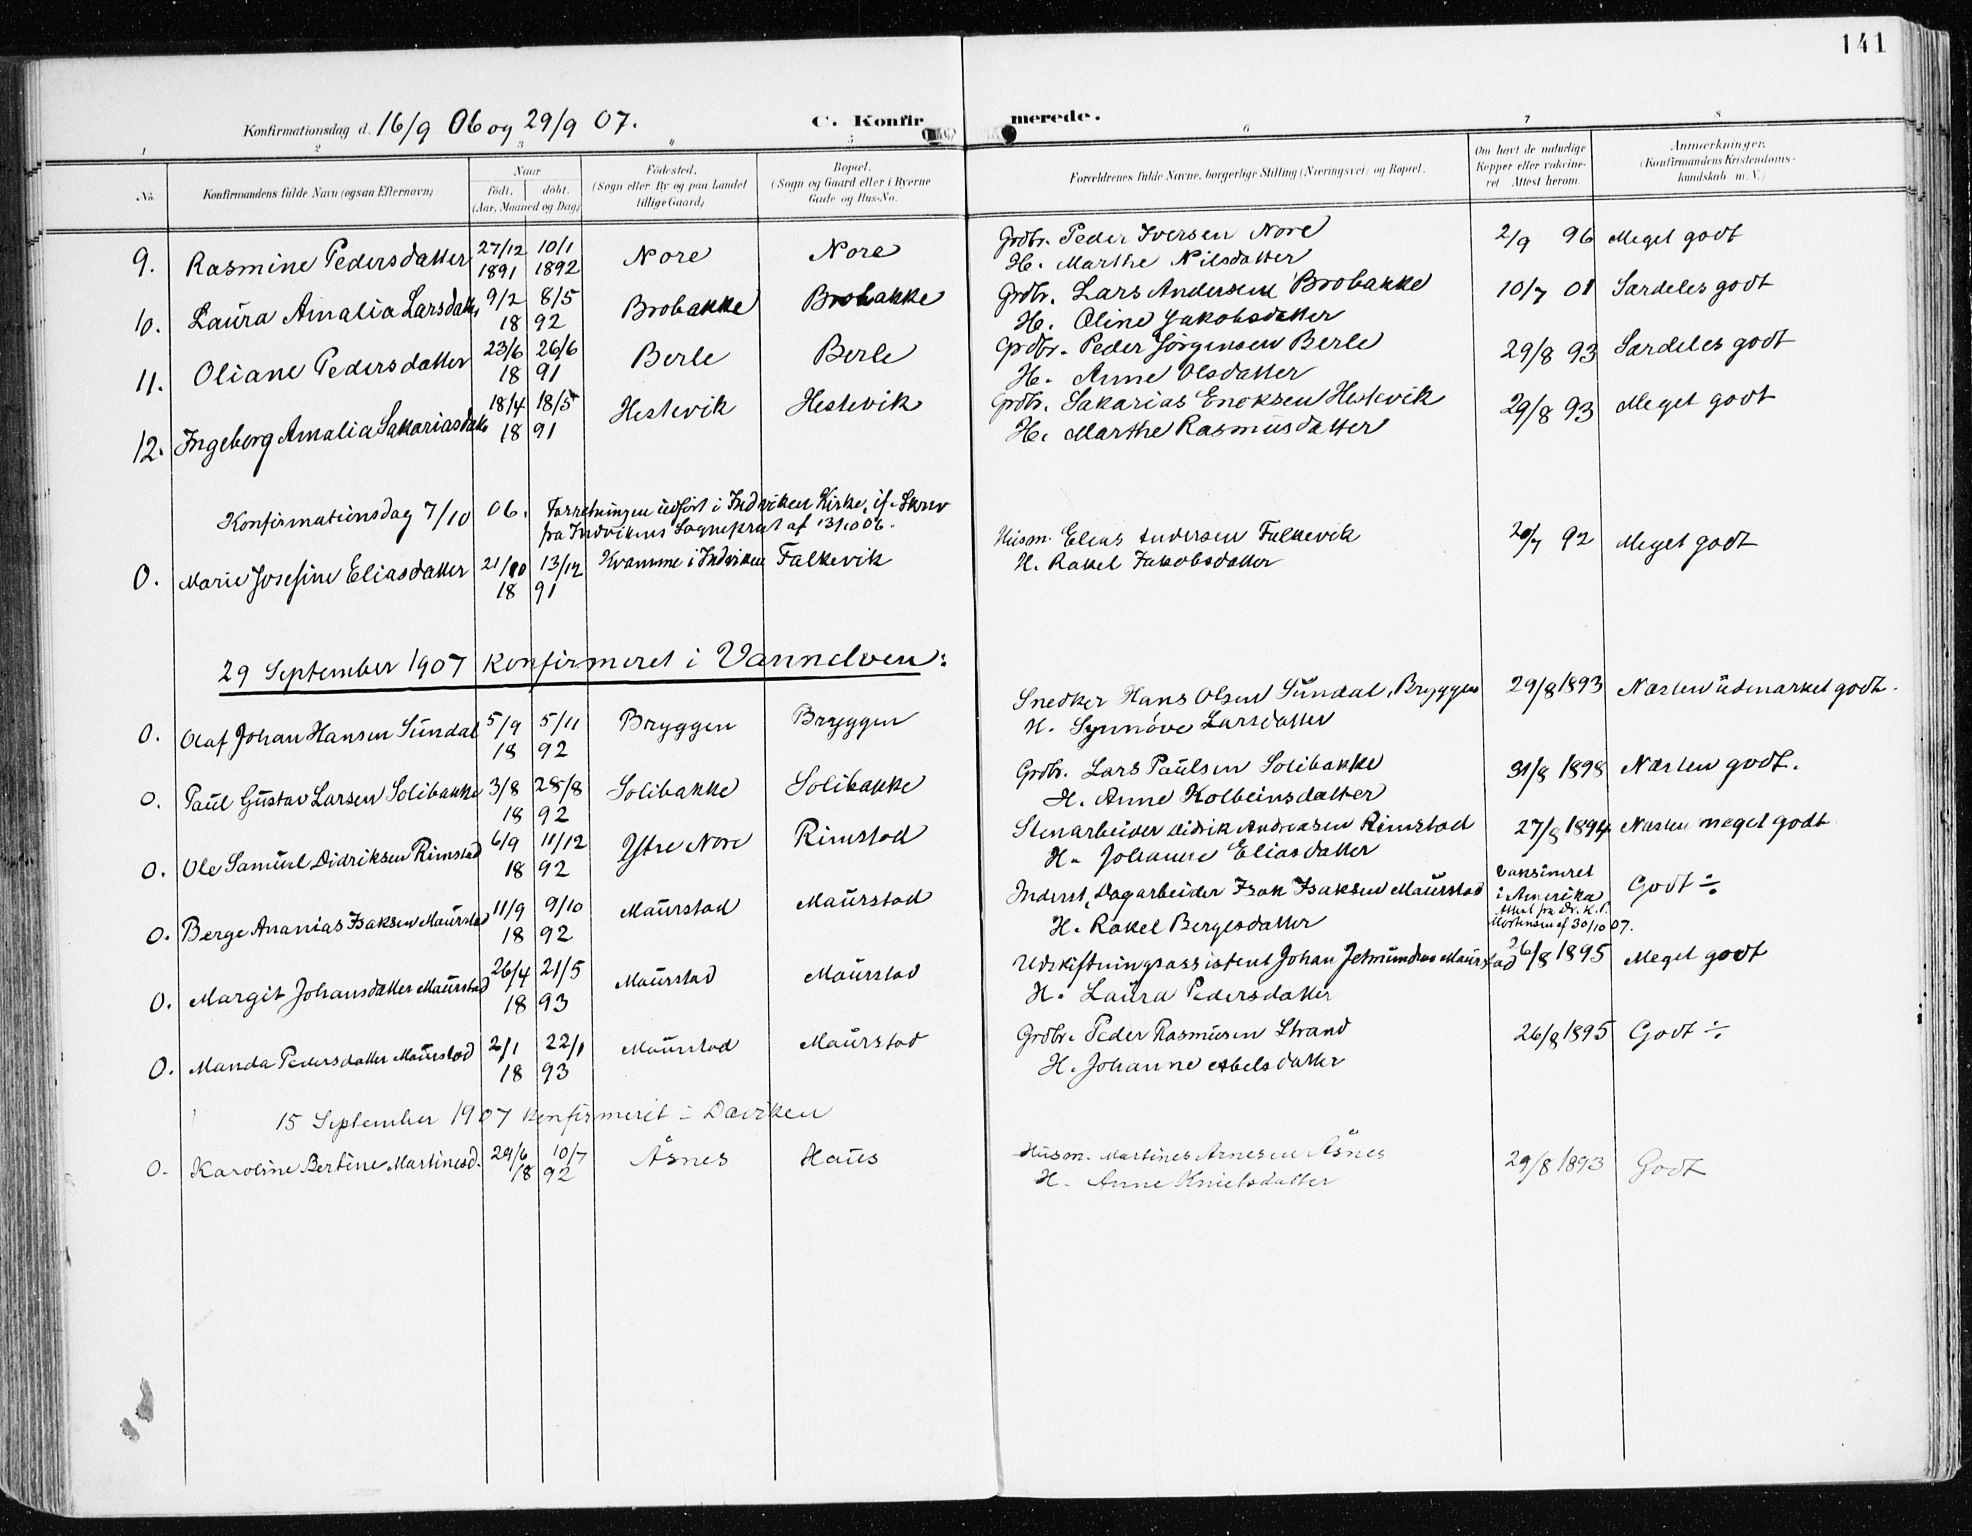 141
Konfirmationsdag d. 16/9 06 og 29/9 07.
C. Konfirmerede.
1 2 3 4 5 6 7 8
No.
Konfirmandens fulde Navn (ogsaa Efternavn)
Naar
födt. döbt.
(Aar, Maaned og Dag)
Födested.
(Sogn eller By og paa Landet
tillige Gaard)
Bopæl.
(Sogn og Gaard eller i Byerne
Gade og Hus-No.
Forældrenes fulde Navne, borgerlige Stilling (Næringsvei) og Bopæl.
Om havt de naturlige
Kopper eller vakcine-
ret Attest herom.
Anmærkninger.
(Konfirmandens Kristendoms-
kundskab m. V.)
9. Rasmine Pedersdatter 27/12 1891 10/1 1892 Nore Nore Grdbr. Peder Iversen Nore 2/9 96 Meget godt
H. Marthe Nilsdatter
10. Laura Amalia Larsdatt. 9/2 8/5 18 92 Brobakke Brobakke Grdbr. Lars Andersen Brobakke 10/7 01 Særdeles godt
H. Oline Jakobsdatter
11. Oliane Pedersdatter 23/6 26/6 18 91 Berle Berle Grdbr. Peder Jörgensen Berle 29/8 93 Særdeles godt
H. Anne Olsdatter
12. Ingeborg Amalia Sakariasdatt. 18/4 18/5 18 91 Hestevik Hestevik Grdbr. Sakarias Enoksen Hestevik 29/8 93 Meget godt
H. Marthe Rasmusdatter
Konfirmationsdag 7/10 06. Forretningen udført i Indviken Kirke, if. Skriv
fra Indvikens Sogneprest af 13/10 06.
0. Marie Josefine Eliasdatter 21/10 13/12 18 91 Kvamme i Indviken Falkevik Husm. Elias Andersen Falkevik 20/7 92 Meget godt
H. Rakel Jakobsdatter
29 September 1907 konfirmeret i Vannelven:
0. Olaf Johan Hansen Sundal 5/9 5/11 18 92 Bryggen Bryggen Snedker Hans Olsen Sundal, Bryggen 29/8 1893 Næsten udmærket godt.
H. Synnöve Larsdatter
0. Paul Gustav Larsen Solibakke 3/8 28/8 18 92 Solibakke Solibakke Grdbr. Lars Paulsen Solibakke 31/8 1898 Næsten godt.
H. Anne Kolbeinsdatter
0. Ole Samuel Didriksen Rimstad 6/9 11/12 18 92 Ytre Nore Rimstad Stenarbeider Didrik Andreasen Rimstad 27/8 1894 Næsten meget godt
H. Johanne Eliasdatter
0. Berge Ananias Isaksen Maurstad 11/9 9/10 18 92 Maurstad Maurstad Inderst, Dagarbeider Isak Isaksen Maurstad vaksineret Godt ÷
i Amerika
Attest fra Dr. K. P.
Mortensen af 30/10 07.
H. Rakel Bergesdatter
0. Margit Johansdatter Maurstad 26/4 21/5 18 93 Maurstad Maurstad Udskiftningsassistent Johan Jetmundsen Maurstad 26/8 1895 Meget godt
H. Laura Pedersdatter
0. Manda Pedersdatter Maurstad 2/1 22/1 18 93 Maurstad Maurstad Grdbr. Peder Rasmusen Strand 26/8 1895 Godt ÷
H. Johanne Abelsdatter
15 September 1907 konfirmeret i Daviken
0. Karoline Bertine Martinesd. 29/6 10/7 18 92 Åsnes Haus Husm. Martines Arnesen Åsnes 29/8 1893 Godt
H. Anne Knielsdatter